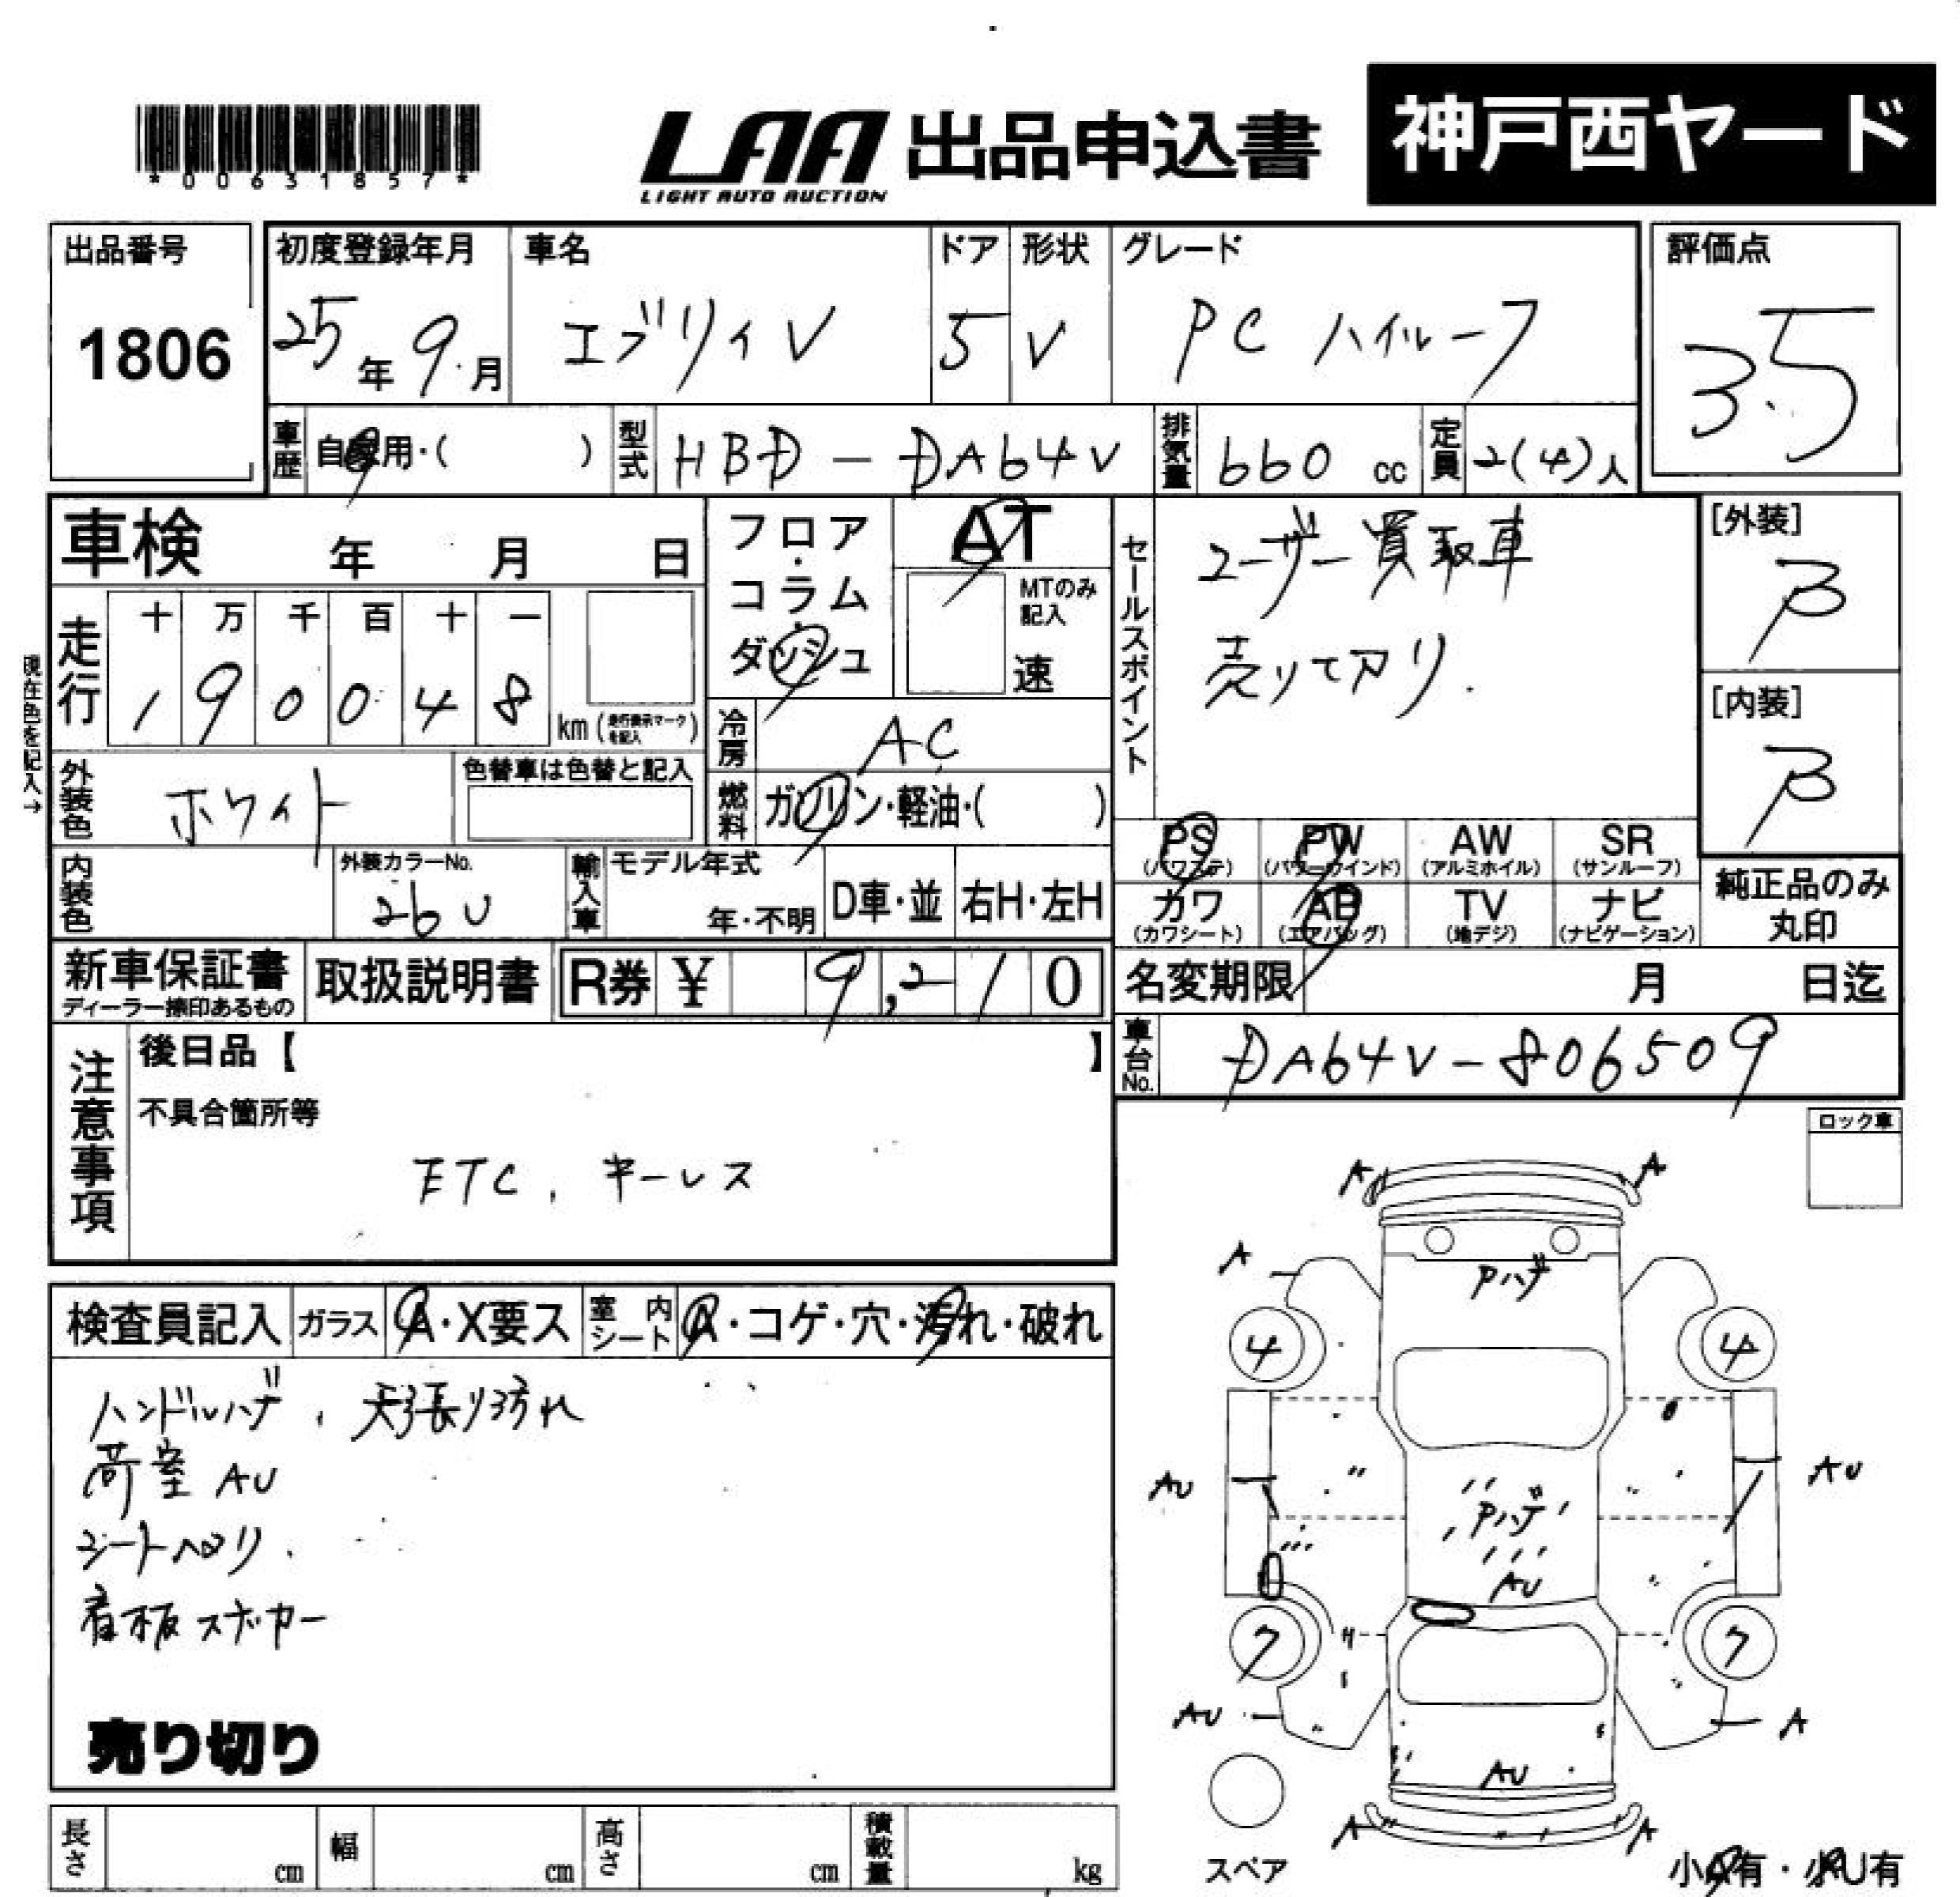 *00631857*
LAA 出品申込書
LIGHT AUTO AUCTION
神戸西ヤード
出品番号
1806
初度登録年月
25年9月
車名
エブリィV
ドア
5
形状
V
グレード
PC ハイルーフ
評価点
3.5
車歴
自家用・( )
型式
HBD-DA64V
排気量
660 cc
定員
2(4)人
車検 年 月 日
フロア・コラム・ダッシュ
AT
MTのみ記入
速
セールスポイント
ユーザー買取車
売りてアリ.
[外装]
B
[内装]
B
現在色を記入→
走行
十 万 千 百 十 一
1 9 0 0 4 8
km (走行表示マークを記入)
冷房
AC
外装色
ホワイト
色替車は色替と記入
燃料
ガソリン・軽油・( )
内装色
外装カラーNo.
26U
輸入車
モデル年式
年・不明
D車・並
右H・左H
PS (パワステ)
PW (パワーウインド)
AW (アルミホイル)
SR (サンルーフ)
カワ (カワシート)
AB (エアバッグ)
TV (地デジ)
ナビ (ナビゲーション)
純正品のみ
丸印
新車保証書
ディーラー捺印あるもの
取扱説明書
R券 ¥ 9,210
名変期限 月 日迄
車台No.
DA64V-806509
注意事項
後日品【 】
不具合箇所等
ETC, キーレス
ロック車
検査員記入
ガラス
A・X要ス
室内シート
A・コゲ・穴・汚れ・破れ
ハンドルハゲ, 天張り汚れ
荷室 AU
シートヘタリ.
看板ステッカー
売り切り
A A
A
Pハゲ
4 4
AU AU
Pハゲ
AU
7 7
AU A
AU
A A
スペア
小A有・小U有
長さ cm
幅 cm
高さ cm
積載量 kg